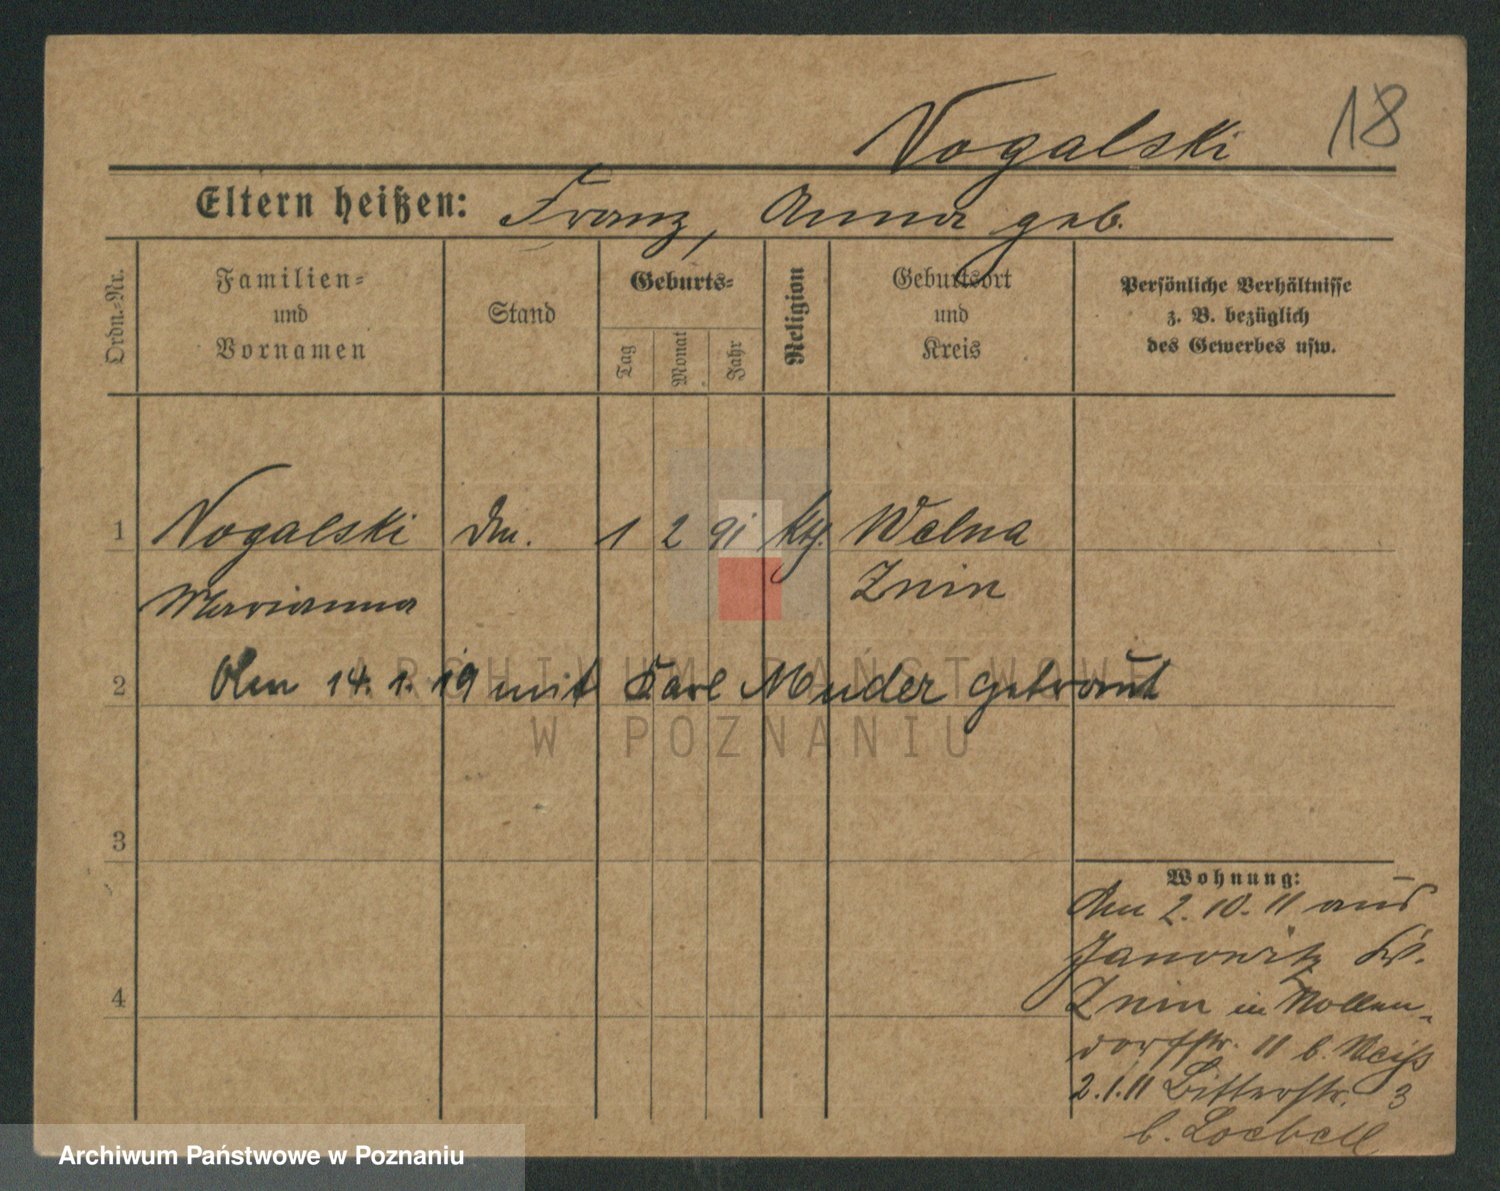 Nogalski 18
Eltern heißen: Franz, Anna geb.
Ordn.-Nr.
Familien-
und
Vornamen
Stand
Geburts-
Tag
Monat
Jahr
Religion
Geburtsort
und
Kreis
Persönliche Verhältnisse
z. B. bezüglich
des Gewerbes usw.
1 Nogalski 1 2 91 kth. Welna
Marianna Znin
2 Am 14. 1. 19 mit Karl Muder getraut
ARCHIWUM PAŃSTWOWE
W POZNANIU
3
Wohnung:
Am 2. 10. 11 aus
Janowitz Kr.
4
Znin in Nollen-
dorfstr. 11 b. Weiss
2.1.11 Bitterstr. 3
b. Loebell
Archiwum Państwowe w Poznaniu